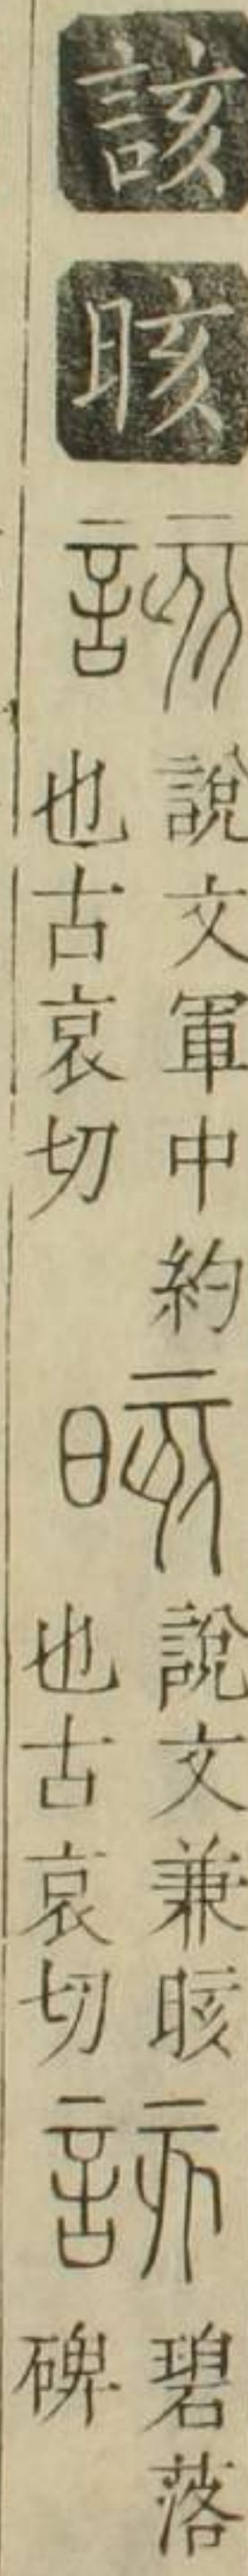 該
晐
該
說文軍中約
也古哀切
晐
說文兼晐
也古哀切
該
碧落
碑